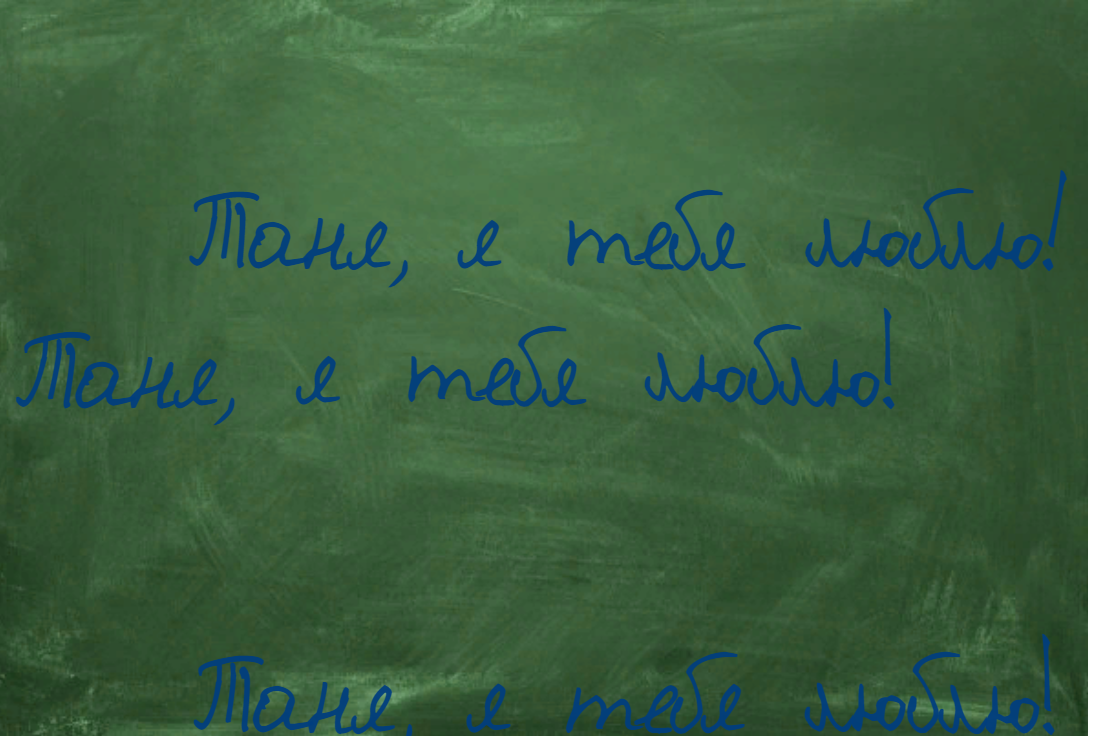 Таня, я тебя люблю!
Таня, я тебя люблю!
Таня, я тебя люблю!